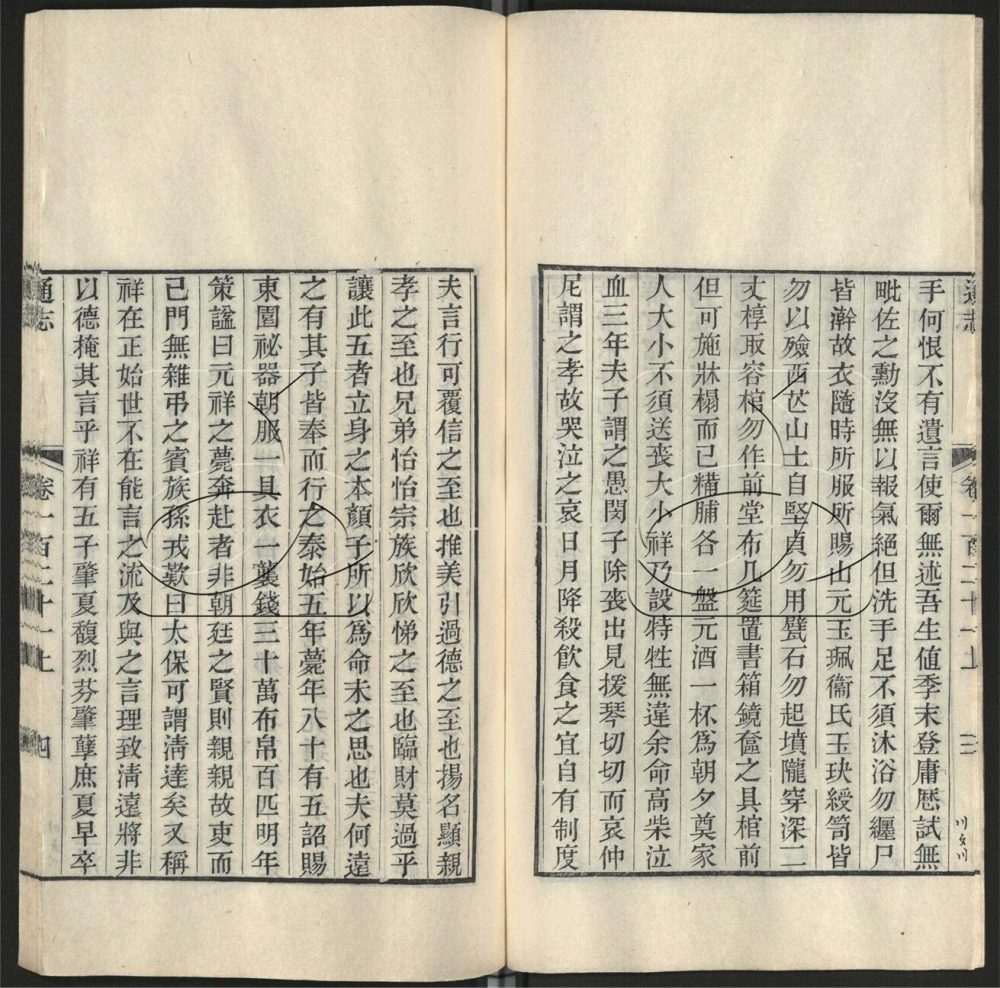 手何恨不有遺言使爾無述吾生値季末登庸厯試無
毗佐之勳沒無以報氣絕但洗手足不須沐浴勿纏尸
皆澣故衣隨時所服所賜山元玉珮衞氏玉玦綬笥皆
勿以殮西芒山士自堅貞勿用甓石勿起墳隴穿深二
丈椁取容棺勿作前堂布几筵置書箱鏡奩之具棺前
但可施牀榻而已糒脯各一盤元酒一杯爲朝夕奠家
人大小不須送喪大小祥乃設特牲無違余命高柴泣
血三年夫子謂之愚閔子除喪出見援琴切切而哀仲
尼謂之孝故哭泣之哀日月降殺飮食之宜自有制度
通志
卷一百二十一上
三
夫言行可覆信之至也推美引過德之至也揚名顯親
孝之至也兄弟怡怡宗族欣欣悌之至也臨財莫過乎
讓此五者立身之本顏子所以爲命未之思也夫何遠
之有其子皆奉而行之泰始五年薨年八十有五詔賜
東園祕器朝服一具衣一襲錢三十萬布帛百匹明年
策諡曰元祥之薨奔赴者非朝廷之賢則親親故吏而
已門無雜弔之賓族孫戎歎曰太保可謂淸達矣又稱
祥在正始世不在能言之流及與之言理致淸遠將非
以德掩其言乎祥有五子肇夏馥烈芬肇孽庶夏早卒
通志
卷一百二十一上
四